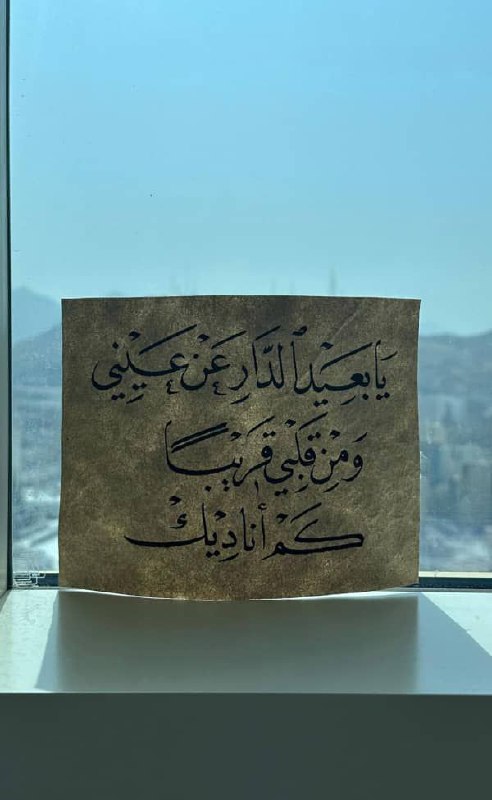 يَا بَعِيْدَ ٱلدَّارِ عَنْ عَيْنِي
وَمِنْ قَلْبِي قَرِيْبًا
كَمْ أُنَادِيْكَ